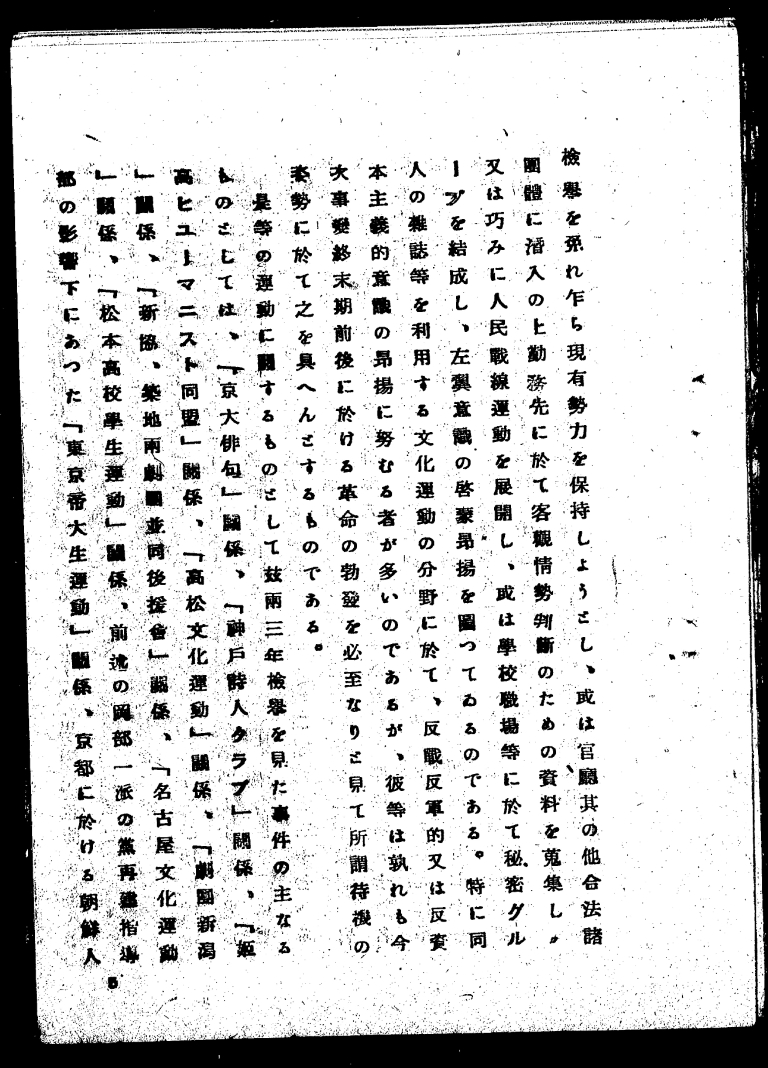 檢擧を免れ乍ら現有勢力を保持しようとし、或は官廳其の他合法諸
團體に潜入の上勤務先に於て客觀情勢判斷のための資料を蒐集し、
又は巧みに人民戰線運動を展開し、或は學校職場等に於て秘密グル
ープを結成し、左翼意識の啓蒙昂揚を圖つてゐるのである。特に同
人の雜誌等を利用する文化運動の分野に於て、反戰反軍的又は反資
本主義的意識の昂揚に努むる者が多いのであるが、彼等は孰れも今
次事變終末期前後に於ける革命の勃發を必至なりと見て所謂待機の
姿勢に於て之を具へんとするものである。
是等の運動に關するものとして玆兩三年檢擧を見た事件の主なる
ものとしては、「京大俳句」關係、「神戸詩人クラブ」關係、「姫
高ヒューマニスト同盟」關係、「高松文化運動」關係、「劇團新潟
」關係、「新協、築地兩劇團並同後援會」關係、「名古屋文化運動
」關係、「松本高校學生運動」關係、前述の岡部一派の黨再建指導
部の影響下にあつた「東京帝大生運動」關係、京都に於ける朝鮮人
5